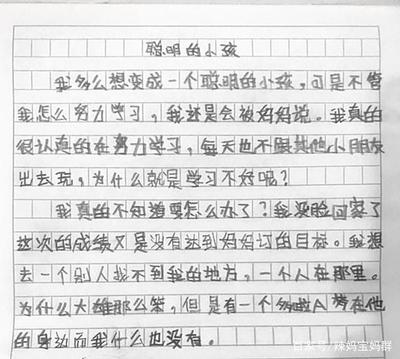 聪明的小孩
我多么想变成一个聪明的小孩，可是不管
我怎么努力学习，我还是会被妈妈说。我真的
很认真的在努力学习，每天也不跟其他小朋友
出去玩，为什么就是学习不好呢？
我真的不知道要怎么办了？我没脸回家了
这次的成绩又是没有达到妈妈订的目标。我想
去一个别人找不到我的地方，一个人在那里。
为什么大雄那么笨，但是有一个多啦A梦在他
的身边而我什么也没有。
百家号/辣妈宝妈群